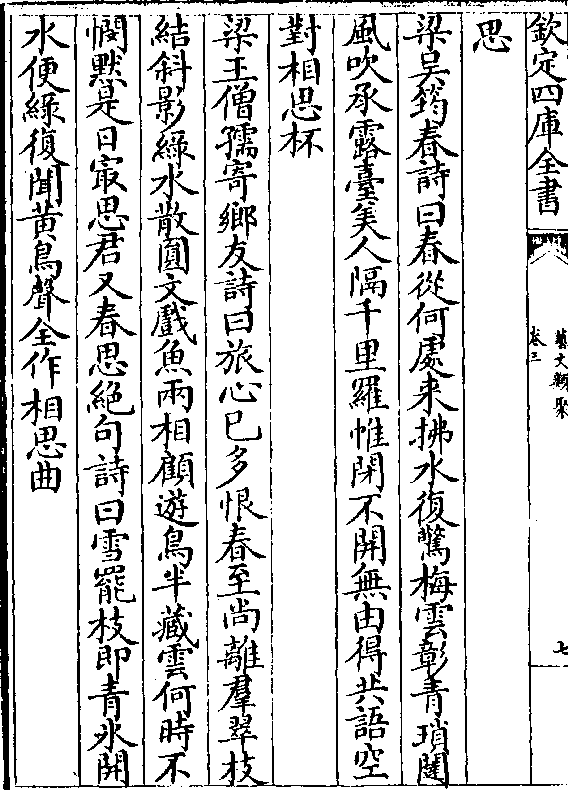 欽定四庫全書
藝文類聚
卷三
七
思
梁吳筠春詩曰春從何處来拂水復驚梅雲彰青瑣闥
風吹承露臺美人隔千里羅帷閉不開無由得共語空
對相思杯
梁王僧孺寄鄉友詩曰旅心已多恨春至尚離羣翠枝
結斜影綠水散圓文戲魚兩相顧遊鳥半藏雲何時不
憫默是日㝡思君又春思絕句詩曰雪罷枝即青氷開
水便綠復聞黃鳥聲全作相思曲